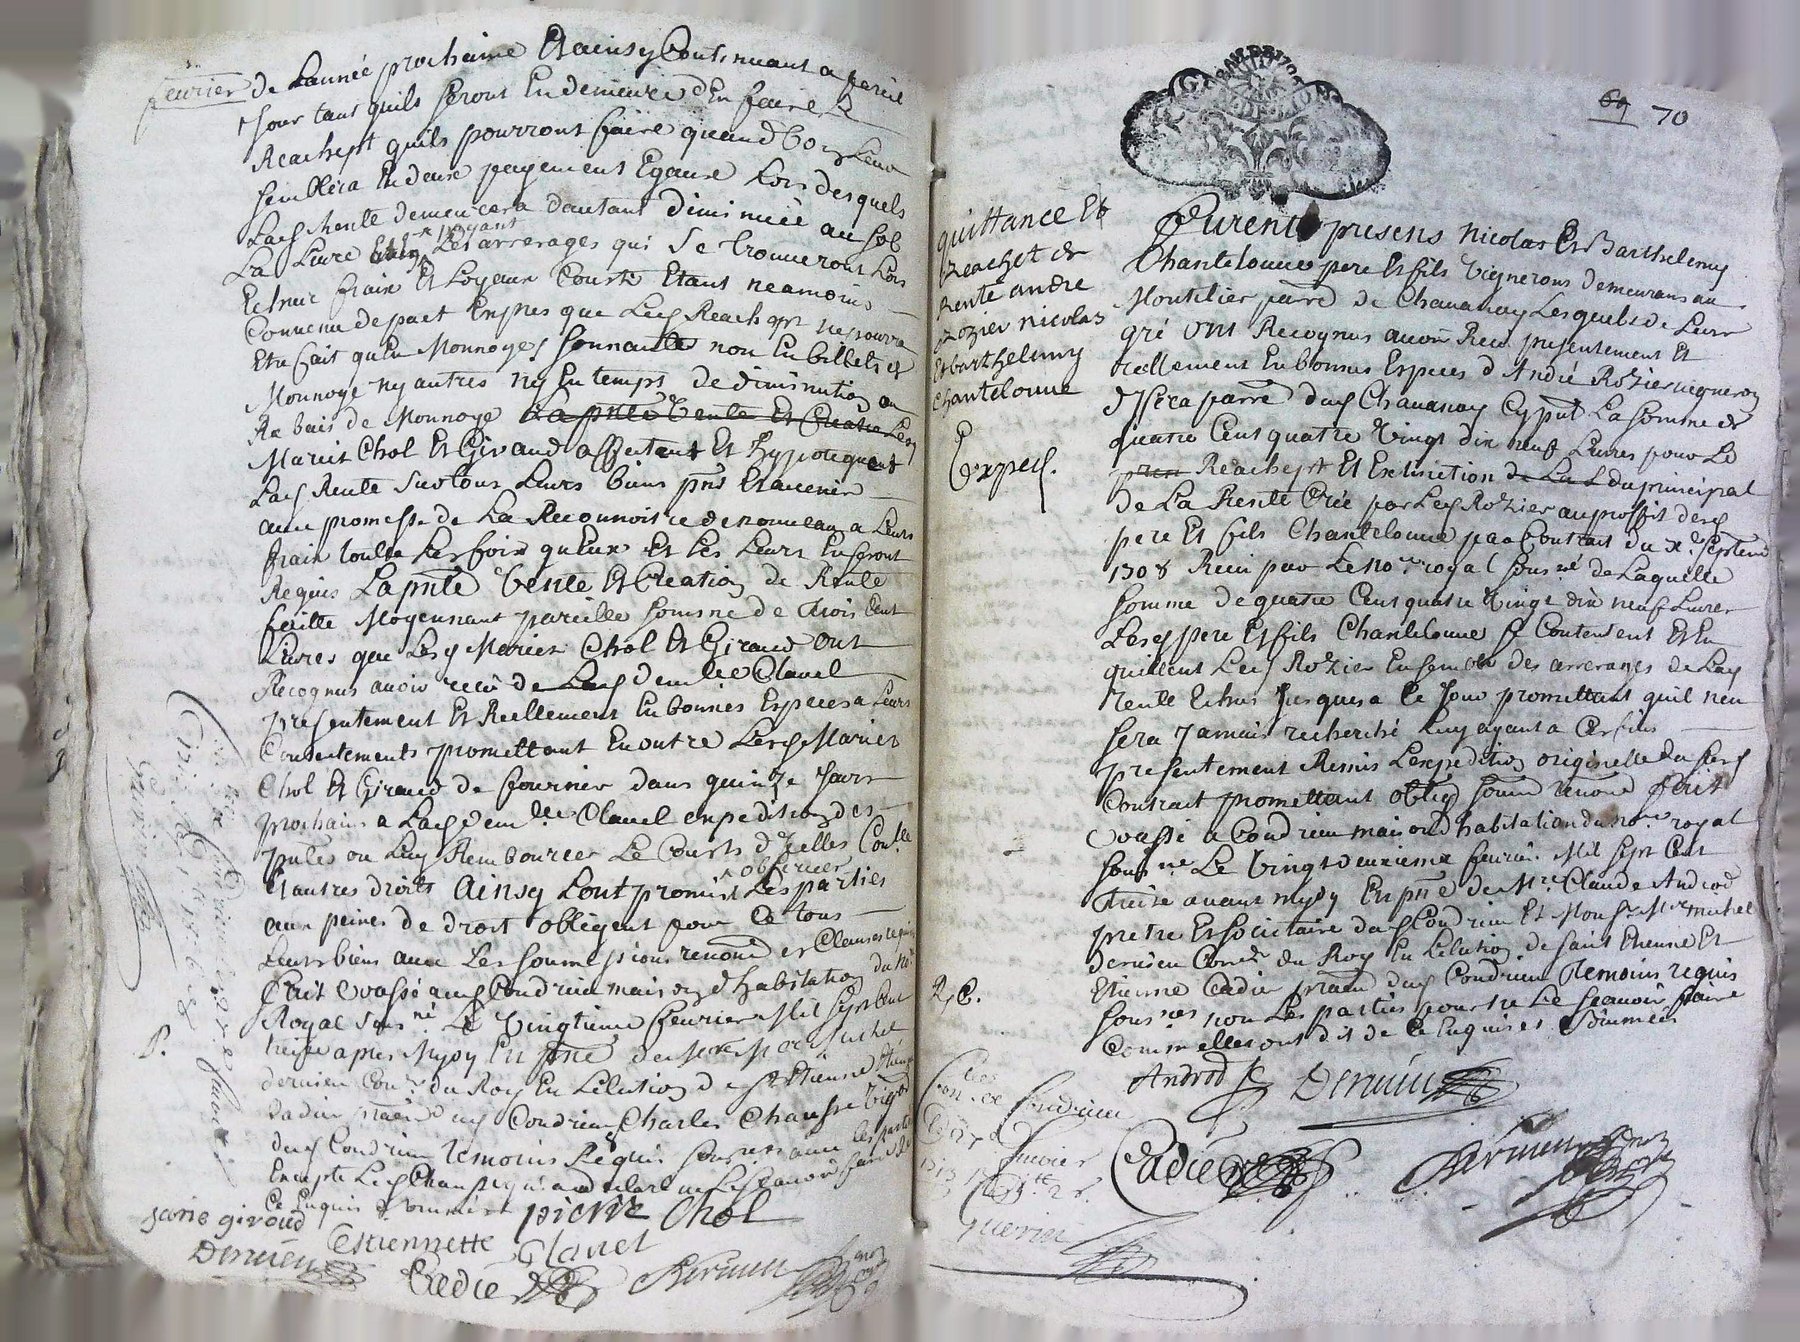 fevrier de Lannée prochaine Et ainsy Continuant a pareil
Jour tant quils seront En demeure d'En faire Le
Reachept quils pourront faire quand bon Leur
semblera En deux payements Egaux Lors desquels
Lad Rente demeurera dautant diminuée au sol
La Livre payant Les arrerages qui se trouveront Lors
Echus frais Et Loyaux Couts Etant neamoins
Convenu de pact Expres que Led Reachept ne pourra
Etre fait qu'En Monnoyes sonnante non En billets de
Monnoye ny autres ny En temps de diminution ou
Rabais de Monnoye La pnte Vente Et Creation Lesd
Mariés Chol Et Giraud affectent Et hypotequent
Lad Rente sur tous Leurs biens pnts Et avenir
avec promesse de La Reconnoistre de nouveau a Leurs
frais toutes Les fois qu'Eux Et Les Leurs En seront
Requis La pnte Vente Et Creation de Rente
faitte Moyennant pareille somme de trois Cent
Livres que Lesd Mariés Chol Et Giraud ont
Recognus avoir receu de Lad demlle Clavel
presentement Et Reellement En bonnes Especes a Leurs
Contentements promettant En outre Lesd Mariés
Chol Et Giraud de fournir dans quinze Jours
prochains a Lad demlle Clavel expedition des
pntes ou Luy Rembourcer Le Couts d'Icelles Conlle
Et autres droits Ainsy Lont promis observer Les parties
aux peines de droit obligent pour Ce tous
Leurs biens avec Les soumissions renond et Clauses requises
fait Et passé aud Condrieu maison d'habitation du nore
Royal sousné Le Vingtieme fevrier Mil sept Cent
treize apres Mydy En pnce de Mre Mre Michel
Dervieu Conr du Roy En L'election de St Etienne Etienne
Cadier praen dud Condrieu Charles Chausse Vigneron
dud Condrieu temoins Requis sousnes avec les parties
Excepté Led Chausse qui a declaré ne Le scavoir faire de
Ce Enquis Et sommé
P.
janne giroud pierre Chol
Estiennette Clavel
Dervieu Cadier
69 70
quittance Et
reachet de
Rente andre
rozier nicolas
Et barthelemy
chantelouve
Exped.
Furent presens Nicolas Et Barthelemy
Chantelouve pere Et fils Vignerons demeurans au
Montelier parre de Chavanay Lesquels de Leur
gré ont Recognus avoir Receu presentement Et
reellement En bonnes Especes d'André Rozier vigneron
d'Isera parre dud Chavanay Cy pnt La somme de
quatre Cent quatre Vingt dix neuf Livres pour Le
Reachept Et Extinction de La du principal
de La Rente Créé par Led Rozier au proffit desd
pere Et fils Chantelouve par Contrat du xe septembre
1708 Receu par Le nore royal sousné de Laquelle
somme de quatre Cent quatre Vingt dix neuf Livres
Lesd pere Et fils Chantelouve se Contentent Et En
quittent Led Rozier Ensemble des arrerages de Lad
Rente Echus Jusques a Ce Jour promettant quil n'en
sera Jamais recherché Luy ayant a Ces fins
presentement Remis L'expedition originelle du susd
Contrait promettant obligd soumd renond fait
Et passé a Condrieu maison d'habitation du nore royal
sousne Le Vingt deuxieme fevrier Mil sept Cent
treize avant mydy En pnce de Mre Claude Androd
pretre Et societaire dud Condrieu Et Monsr Mre michel
dervieu Conelr du Roy En L'election de saint Etienne Et
Etienne Cadier praen dud Condrieu temoins requis
sousnes non Les parties pour ne Le scavoir faire
Comm'elles ont dit de Ce Enquises Et sommées
R. C.
Androd Dervieu
Cadier
Conlé a Condrieu
fevrier
1713
Guerin